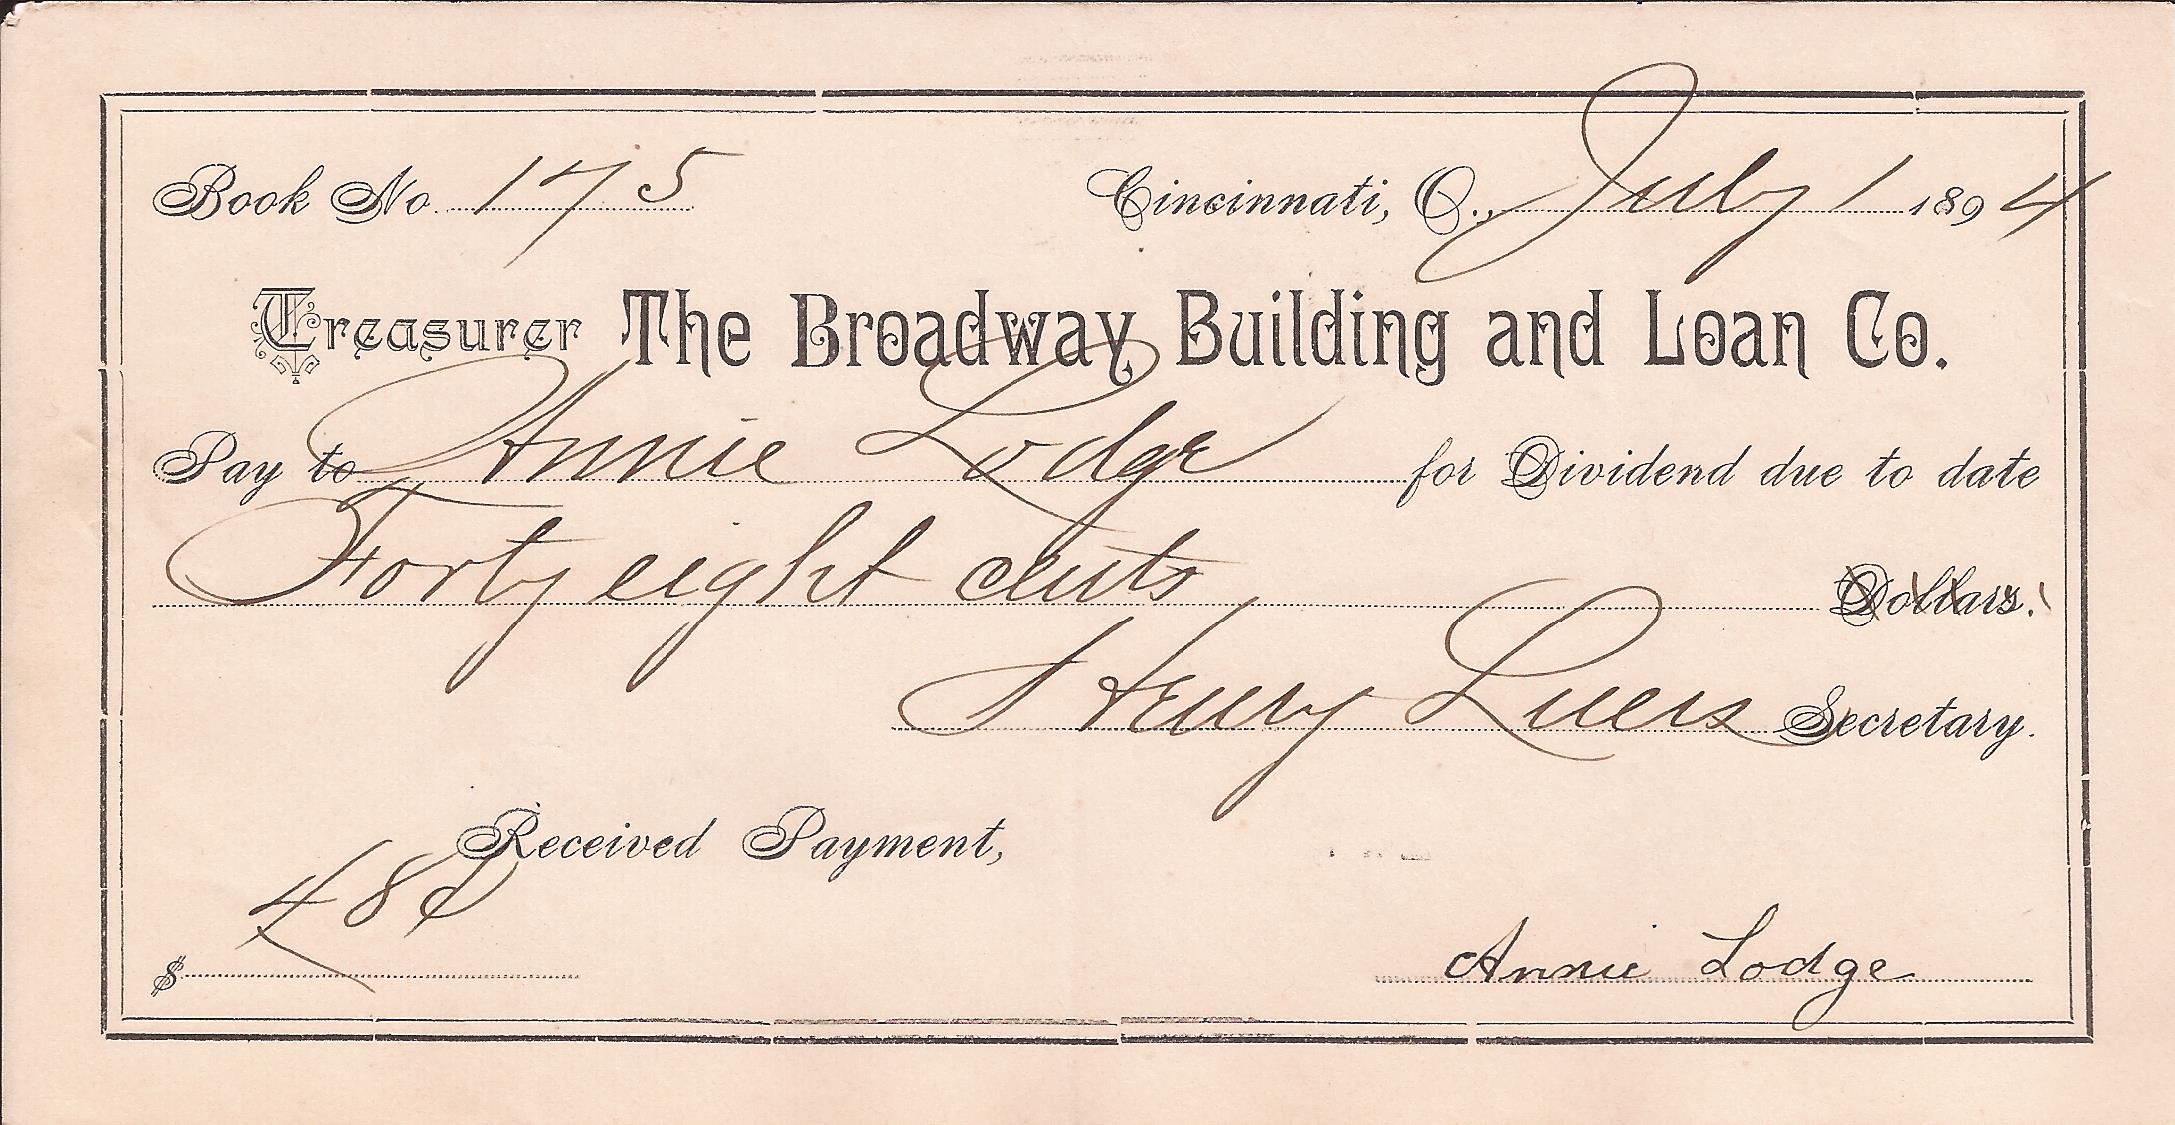 Book No. 175 Cincinnati, O., July 1 1894
Treasurer The Broadway Building and Loan Co.
Pay to Annie Lodge for Dividend due to date
Forty eight cents Dollars.
Henry Luers Secretary.
Received Payment,
$ 48¢ Annie Lodge